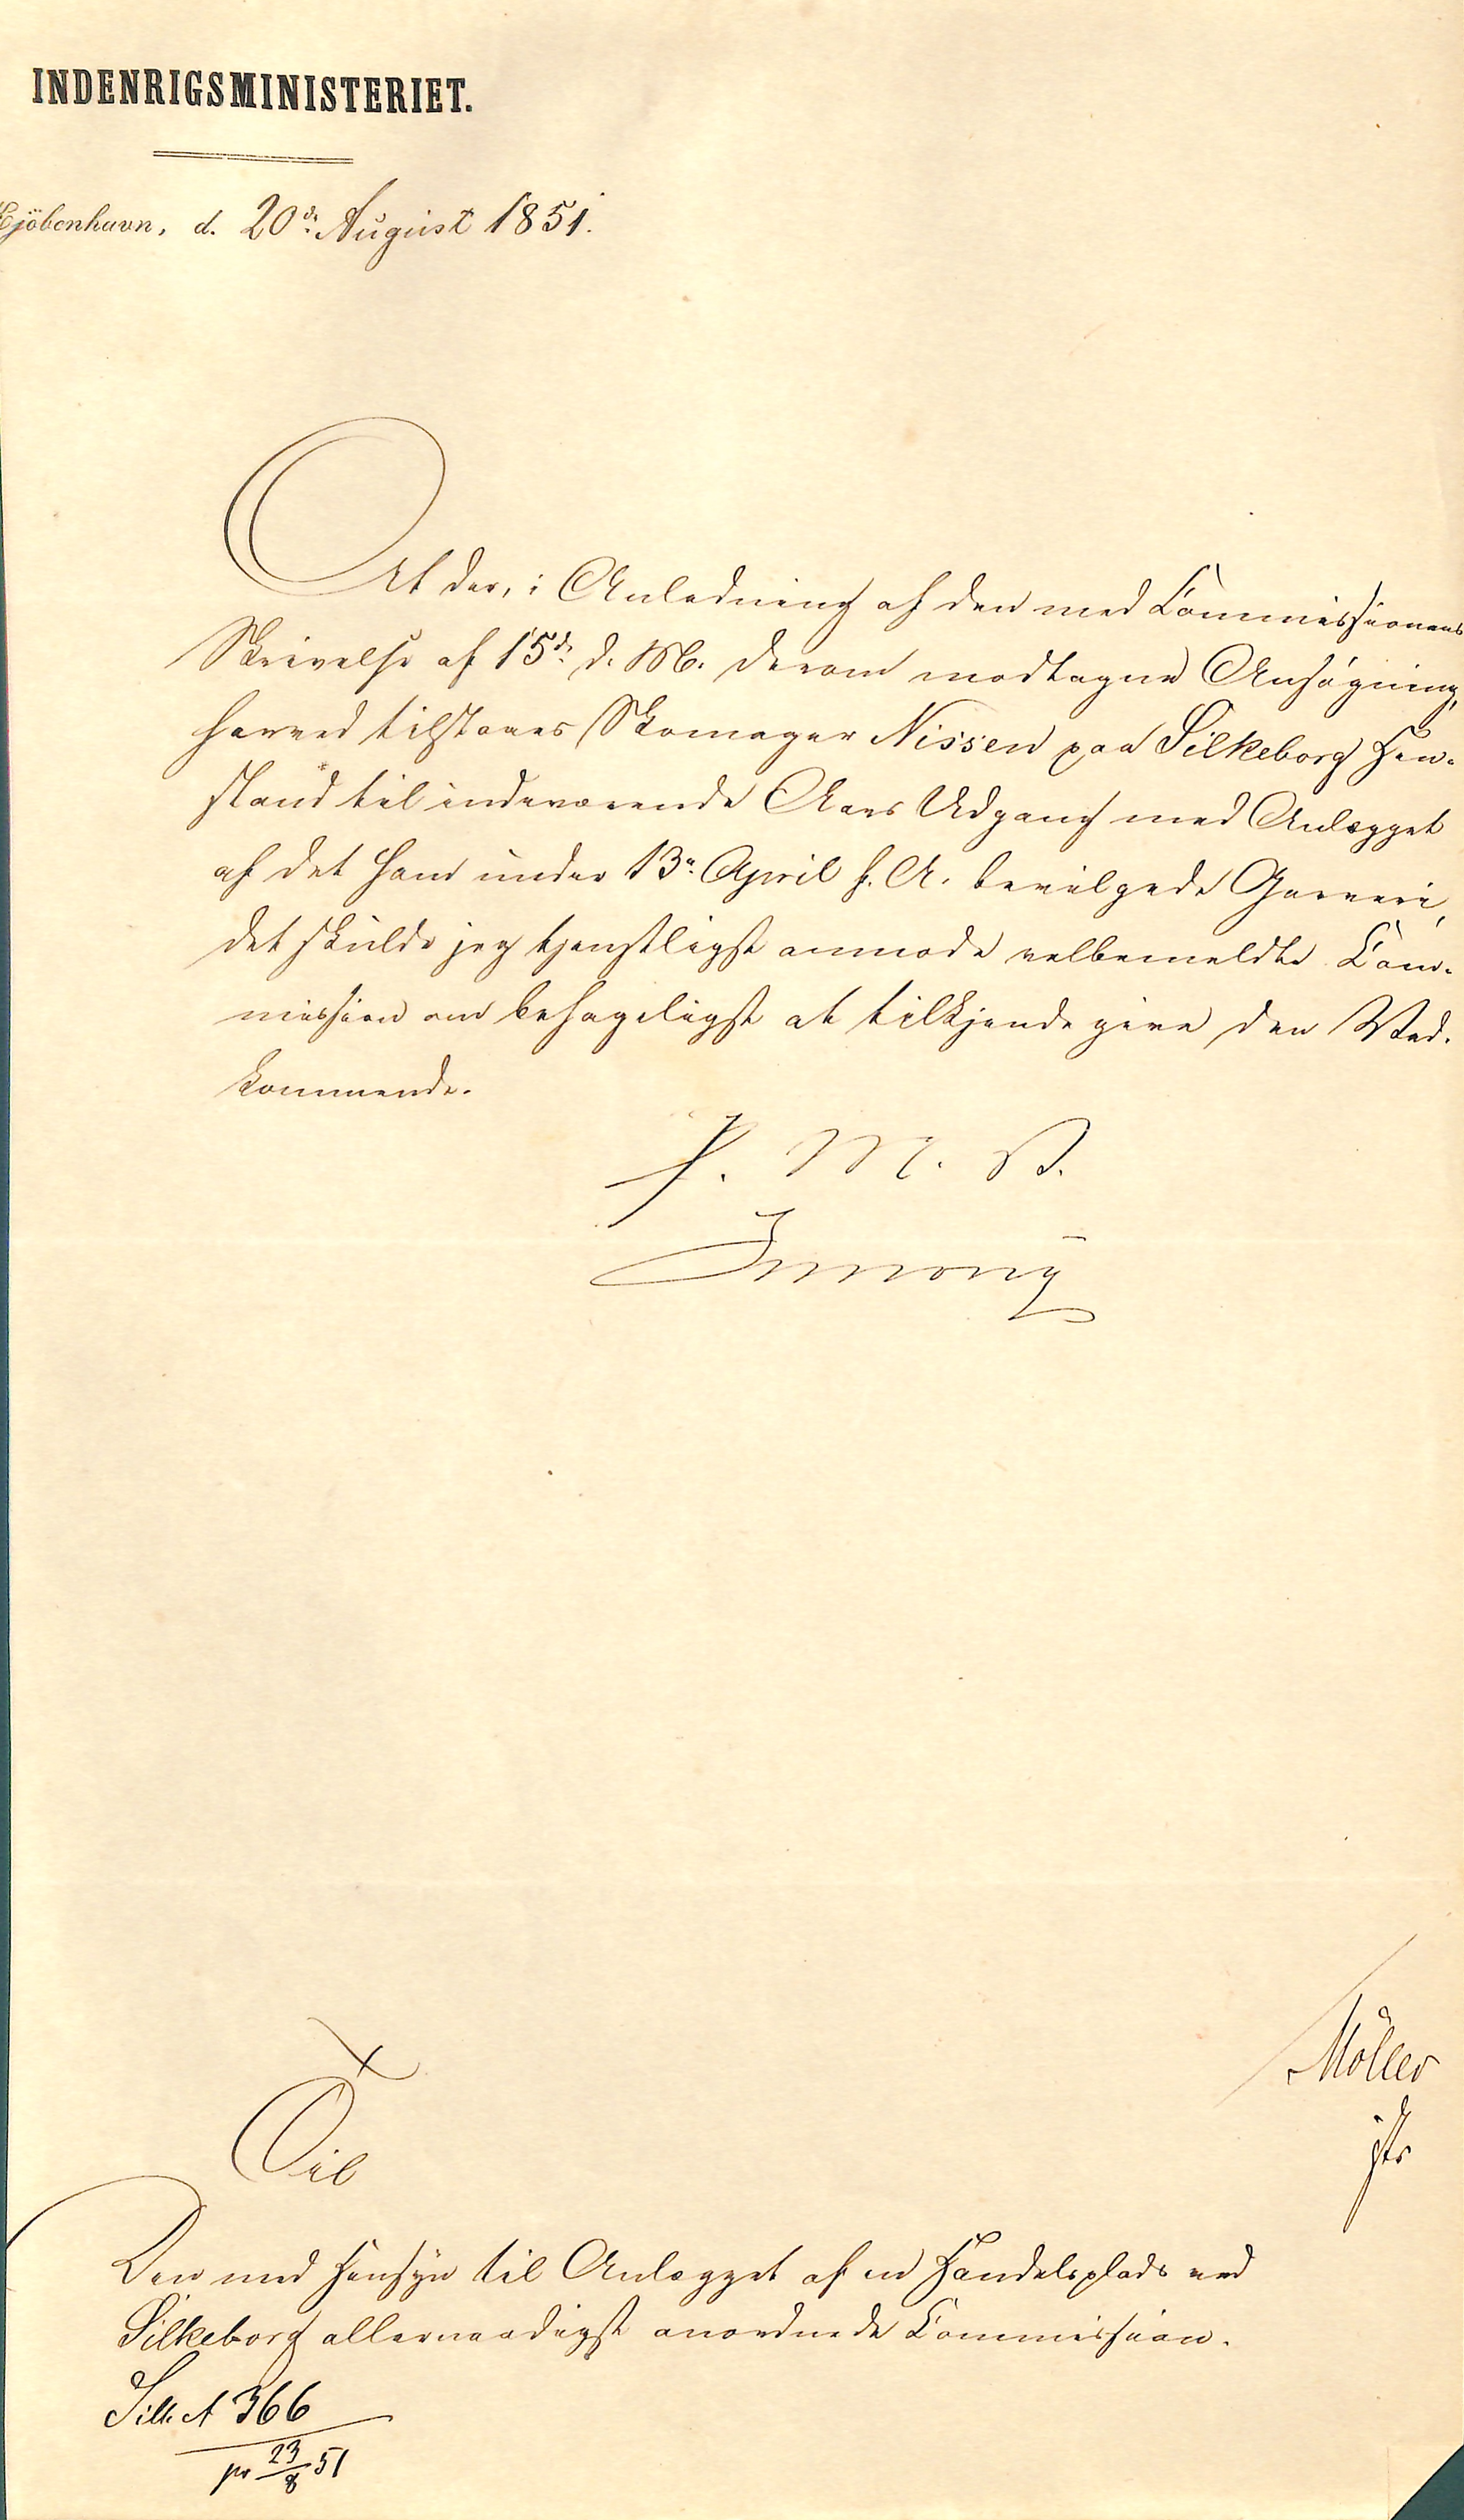 INDENRIGSMINISTERIET.
Kjöbenhavn, d. 20de August 1851.
At der, i Anledning af den med Commissionens
Skrivelse af 15de d. M. derom modtagne Ansøgning,
herved tilstaaes Skomager Nissen paa Silkeborg Hen-
stand til indeværende Aars Udgang med Anlægget
af det ham under 13de April f. A. bevilgede Garveri,
det skulde jeg tjenstligst anmode velbemeldte Com-
mission om behageligst at tilkjendegive den Ved-
kommende.
P. M. V.
Möller
Til
Den med Hensyn til Anlægget af en Handelsplads ved
Silkeborg allernaadigst anordnede Commission.
Silk A 366
pr 23/8 51